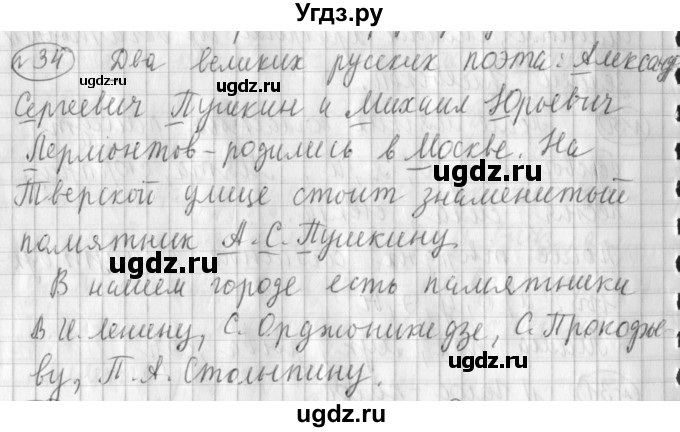 Угдз.ру
№34 Два великих русских поэта: Александр
Сергеевич Пушкин и Михаил Юрьевич
Лермонтов - родились в Москве. На
Тверской улице стоит знаменитый
памятник А.С. Пушкину
В нашем городе есть памятники
В.И. Ленину, С. Орджоникидзе, С. Прокофье-
ву, П.А. Столыпину.
ugdz.ru
ugdz.ru
ugdz.ru
ugdz.ru
ugdz.ru
ugdz.ru